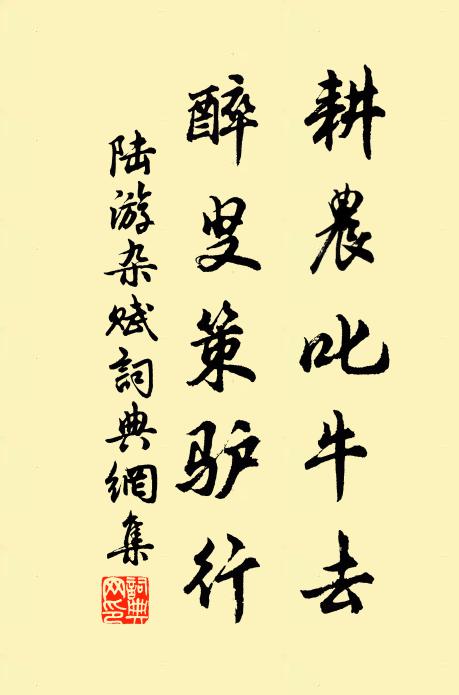 耕農叱牛去
醉叟策驴行
陆游杂赋詞典網集
詞典网印